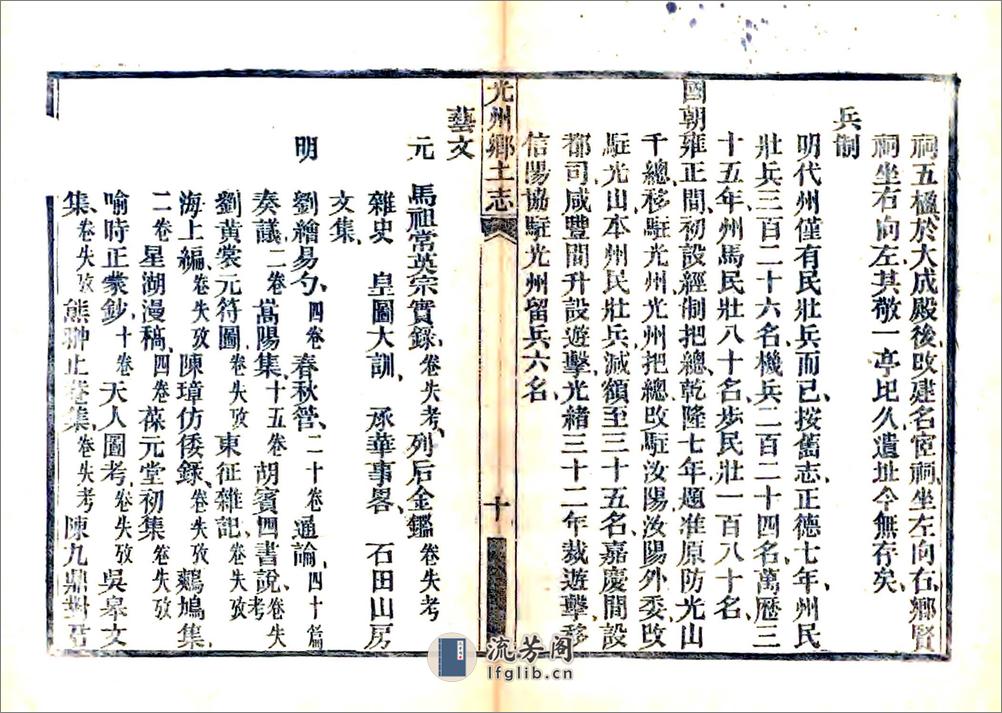 祠五楹於大成殿後改建名宦祠坐左向右鄉賢
祠坐右向左其敬一亭圮久遺址今無存矣
兵制
明代州僅有民壯兵而已按舊志正德七年州民
壯兵三百二十六名機兵二百二十四名萬歷三
十五年州馬民壯八十名步民壯一百八十名
國朝雍正間初設經制把總乾隆七年題准原防光山
千總移駐光州光州把總改駐汝陽汝陽外委改
駐光山本州民壯兵減額至三十五名嘉慶間設
都司咸豐間升設遊擊光緒三十二年裁遊擊移
信陽協駐光州留兵六名
光州鄉土志 十
藝文
元 馬祖常英宗實錄卷失考列后金鑑卷失考
雜史 皇圖大訓 承華事畧 石田山房
文集
明 劉繪易勺四卷春秋管二十卷通論四十篇
奏議二卷嵩陽集十五卷 胡賓四書說卷失考
劉黃裳元符圖卷失攷 東征雜記卷失攷
海上編卷失攷 陳璋仿倭錄卷失攷 鷓鳩集
二卷 星湖漫稿四卷葆元堂初集卷失攷
喻時正蒙鈔十卷 天人圖考卷失攷 吳皋文
集卷失攷 熊翀止菴集卷失考 陳九鼎對君
流芳阁
lfglib.cn